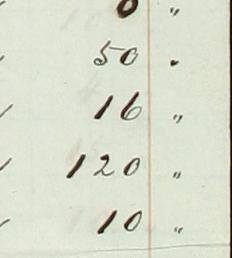 0 "
50 .
16 "
120 "
10 "